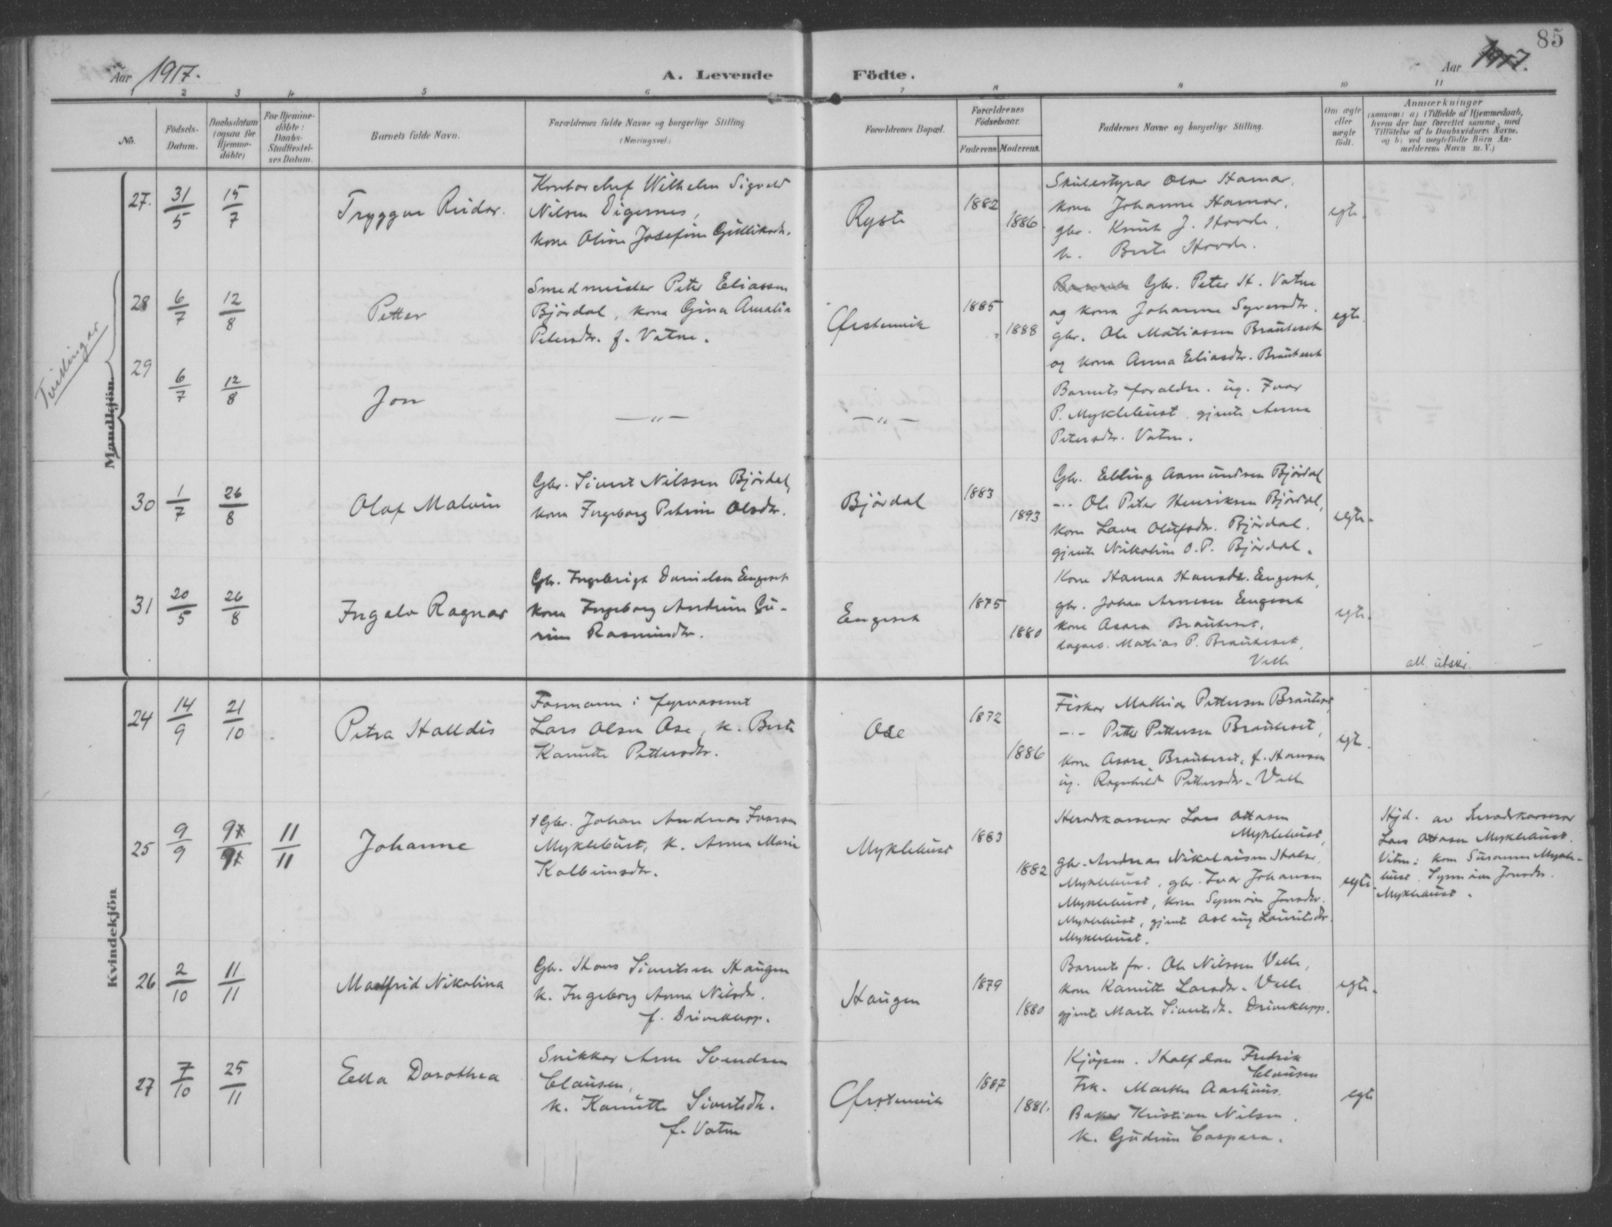 85
Aar 1917.
A. Levende Födte.
Aar 1917.
1 2 3 4 5 6 7 8 9 10 11
No.
Födsels-Datum.
Daabsdatum (ogsaa for Hjemme-döbte)
For Hjemme-döbte: Daabs-Stadfæstel-ses Datum.
Barnets fulde Navn.
Forældrenes fulde Navne og borgerlige Stilling (Næringsvei)
Forældrenes Bopæl.
Forældrenes Födselsaar.
Faderens
Moderens.
Faddernes Navne og borgerlige Stilling.
Om ægte eller uægte födt.
Anmærkninger
Mandkjön.
Tvillinger
27. 31/5 15/7
Tryggve Reidar.
Kontorchef Wilhelm Sigvald
Nilsen Digernes,
kone Oline Josefine Gullikdr.
Ryste
1882
1886.
Skulestyrar Olav Hamar.
kone Johanne Hamar.
gbr. Knut J. Hovde.
k. Berte Hovde.
egte
28 6/7 12/8
Petter
Smedmeister Peter Eliassen
Björdal, kone Gina Amalia
Petersdr. f. Vatne.
Ørstenvik
1885
1888
Gbr. Peter H. Vatne
og kone Johanne Syversdr.
gbr. Ole Mathiassen Brauteset
og kone Anna Eliasdr. Brauteset
egte
29 6/7 12/8
Jon
—"—
—"—
Barnets foraldre. ug. Ivar
P. Myklebust. gjente Anna
Petersdr. Vatne.
30 1/7 26/8
Olaf Malvin
Gbr. Sivert Nilssen Björdal,
kone Ingeborg Petrine Olsdr.
Björdal
1883
1893
Gbr. Elling Aamundsen Björdal
-"- Ole Peter Henriksen Björdal,
kone Lava Olufsdr. Björdal.
gjente Nikoline O.P. Björdal.
egte.
31 20/5 26/8
Ingalv Ragnar
Gbr. Ingebrigt Danielsen Engeset
kone Ingeborg Andrine Gu-
rine Rasmusdr.
Engeset
1875
1880
Kone Hanna Hansdr. Engeset,
gbr. Johan Arnesen Engeset
kone Asora Brauteset,
dagarb. Matias P. Brauteset,
Velle
egte.
all. utskr.
Kvindekjön
24 14/9 21/10
Petra Halldis
Formann i fyrvæsenet
Lars Olsen Ose, k. Berte
Kanutte Pettersdr.
Ose
1872
1886
Fisker Mathias Pettersen Brauteset
-"- Petter Pettersen Brauteset,
kone Asora Brauteset, f. Hansen
ug. Ragnhild Pettersdr. Velle
egte.
25 9/9 11/11
Johanne
Gbr. Johan Andreas Ivarsen
Myklebust, k. Anna Marie
Kolbeinsdr.
Myklebust
1883
1882
Heradskasserer Lars Ottesen
Myklebust,
gbr. Andreas Nikolausen
Myklebust, gbr. Ivar Johansen
Myklebust, kone Synnöve Jonsdr.
Myklebust, gjente Aslaug Lauritsdr.
Myklebust.
egte.
Hjd. av heradskasserar
Lars Ottesen Myklebust.
Vitne: kone Susanne Mykle-
bust. Synnöve Jonsdr.
Myklebust.
26 2/10 11/11
Malfrid Nikolina
Gbr. Hans Sivertsen Haugen
k. Ingeborg Anna Nilsdr.
f. Driveklepp.
Haugen
1879
1880
Barnets far. Ole Nilsen Velle,
kone Kanutte Larsdr. Velle
gjente Marte Sivertsdr. Driveklepp.
egte.
27 7/10 25/11
Ella Dorothea
Snikkar Arne Svendsen
Clausen,
k. Kanutte Sivertsdr.
f. Vatne
Ørstenvik
1887
1881.
Kjöpm. Halfdan Fredrik
Clausen
Frk. Marthe Aarhuus
Baker Kristian Nilsen.
k. Gudrun Caspara.
egte